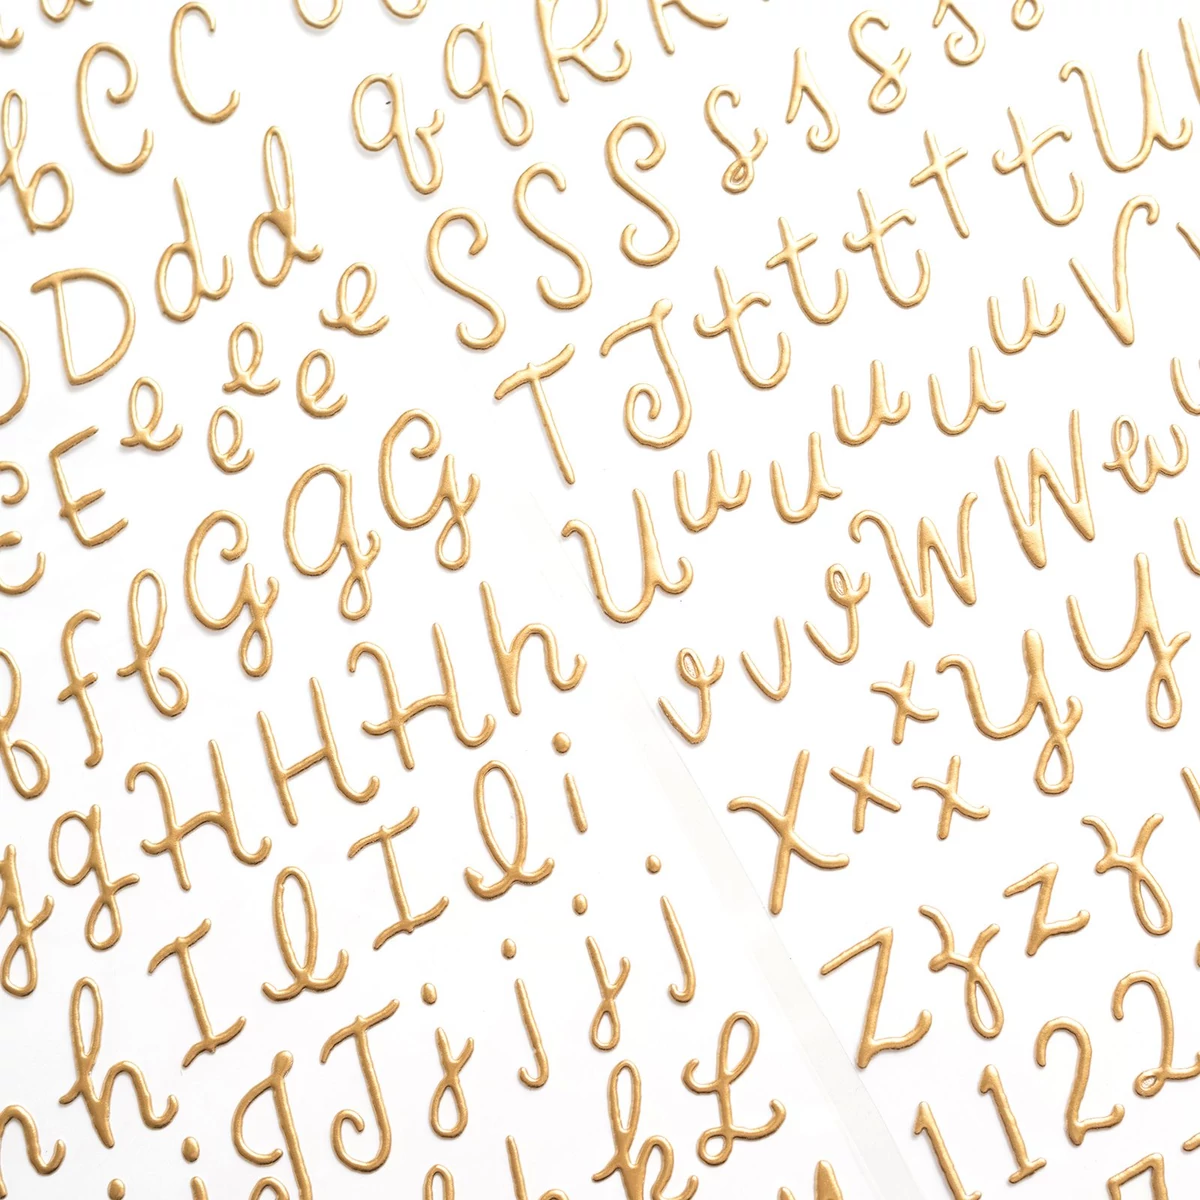 C C
b
q q R
s s s s
D d d
S S S
t t t t t U
e e e e e
T J
u u u u u V
E
G G G
U
v v v W W w
f f
H H H h
x x x x y y
g g
I l I l i
X
Z z z z
h
J J j j j j j
1 1 2 2
k L